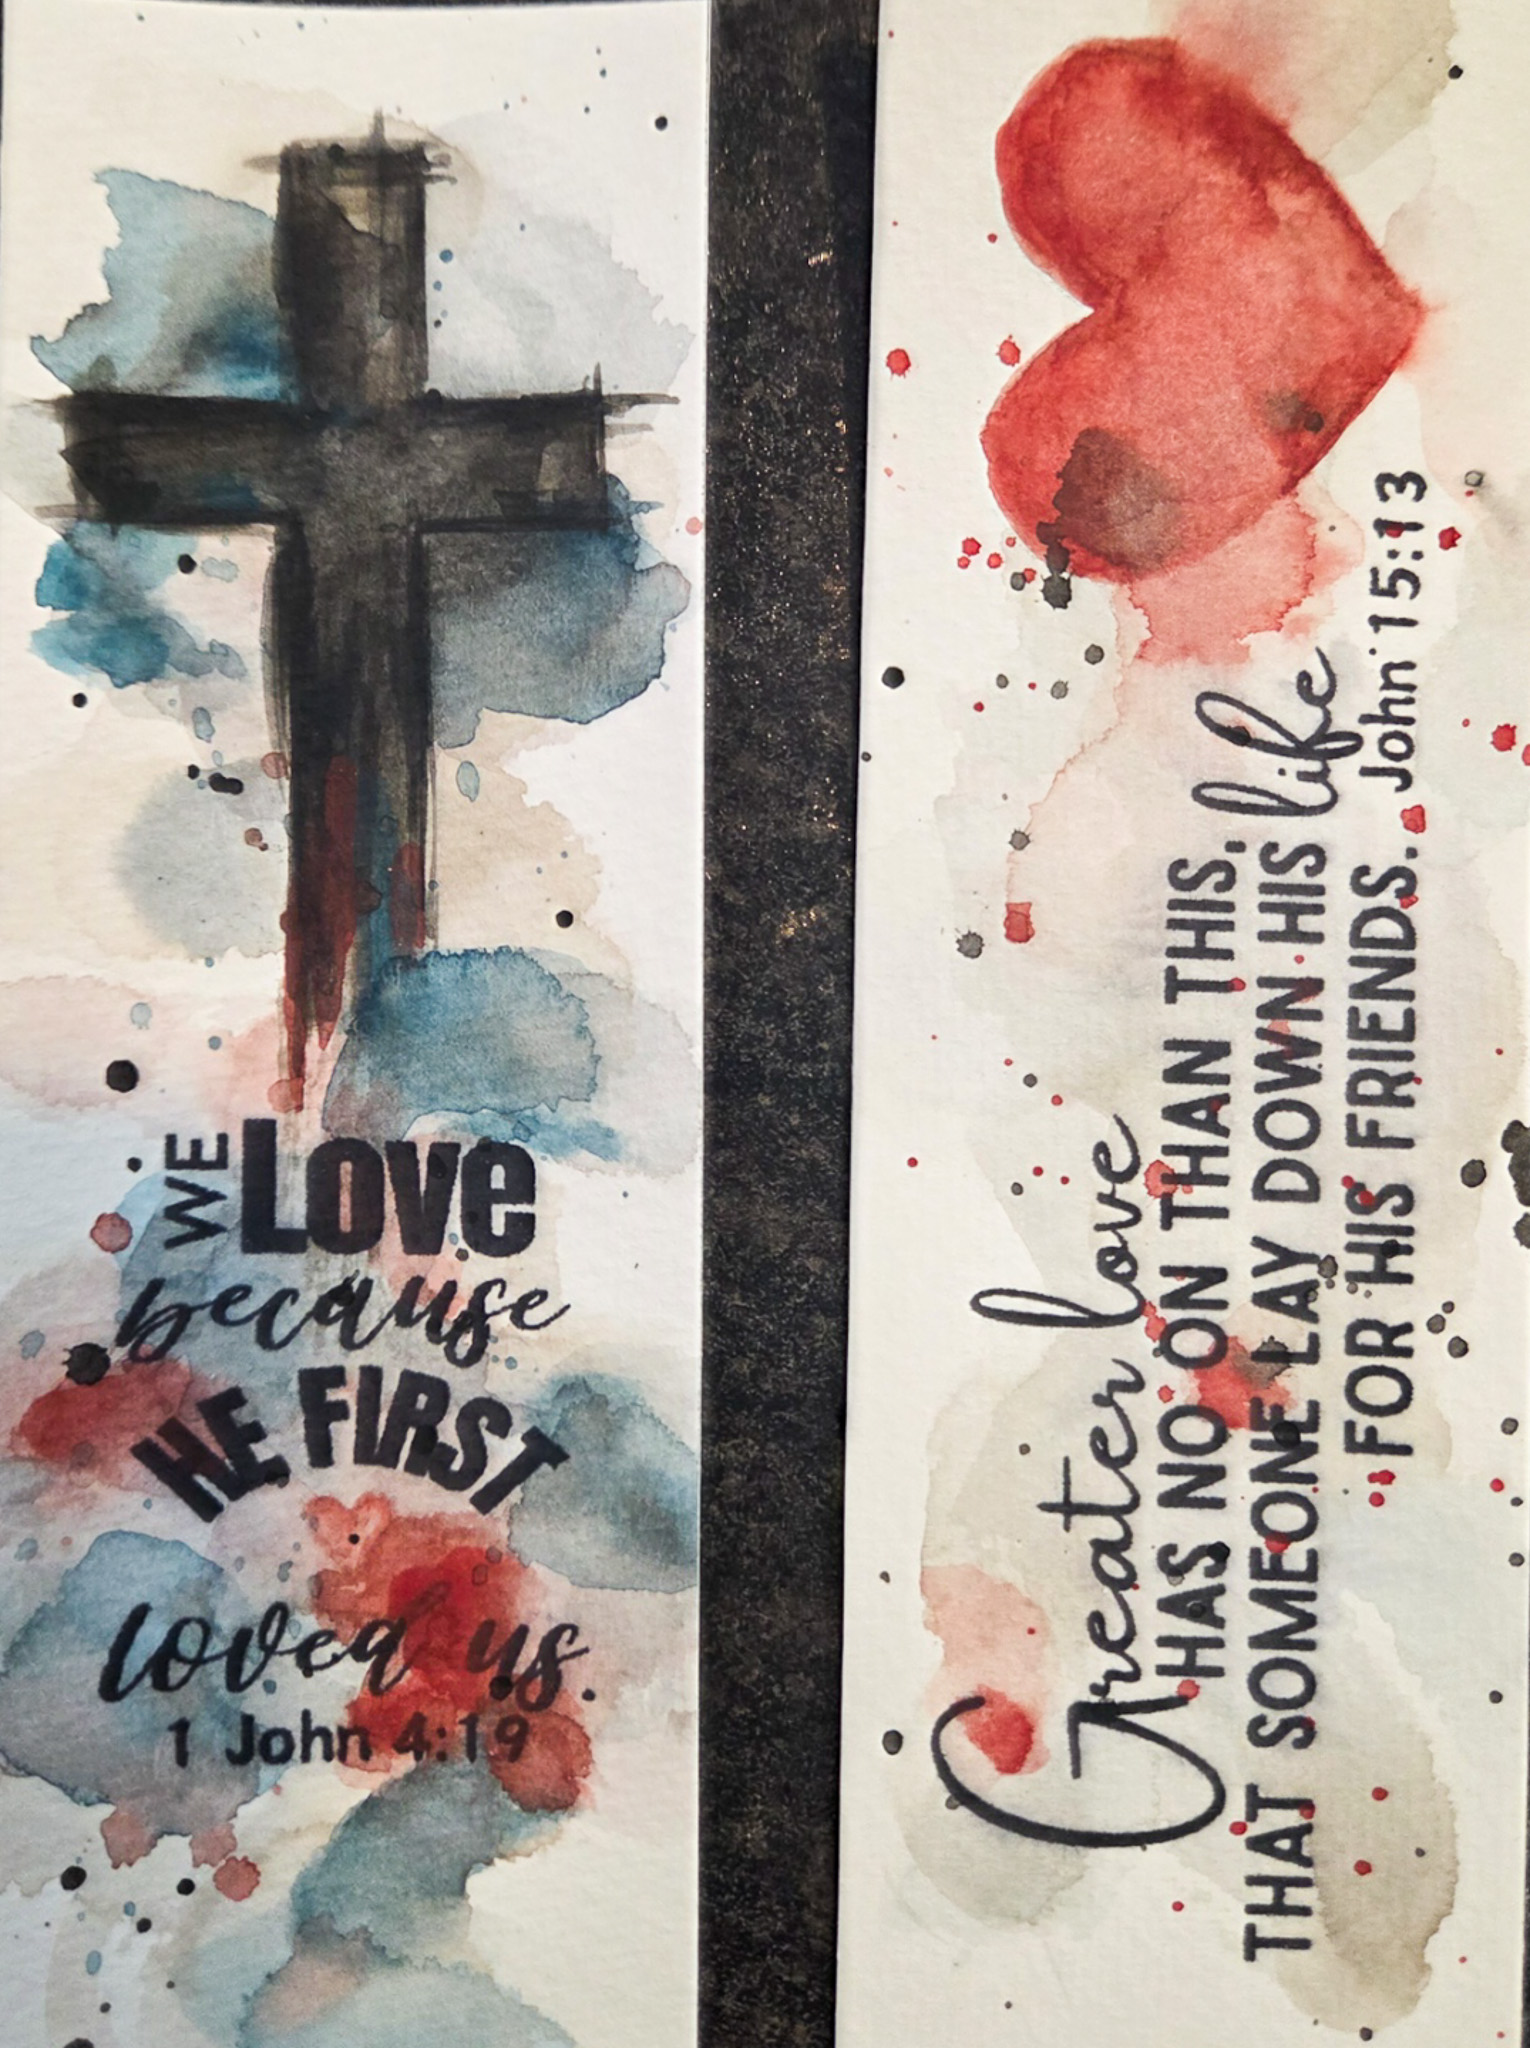 WE Love
because
HE FIRST
loved us.
1 John 4:19
Greater love
HAS NO ON THAN THIS,
THAT SOMEONE LAY DOWN HIS life
FOR HIS FRIENDS. John 15:13